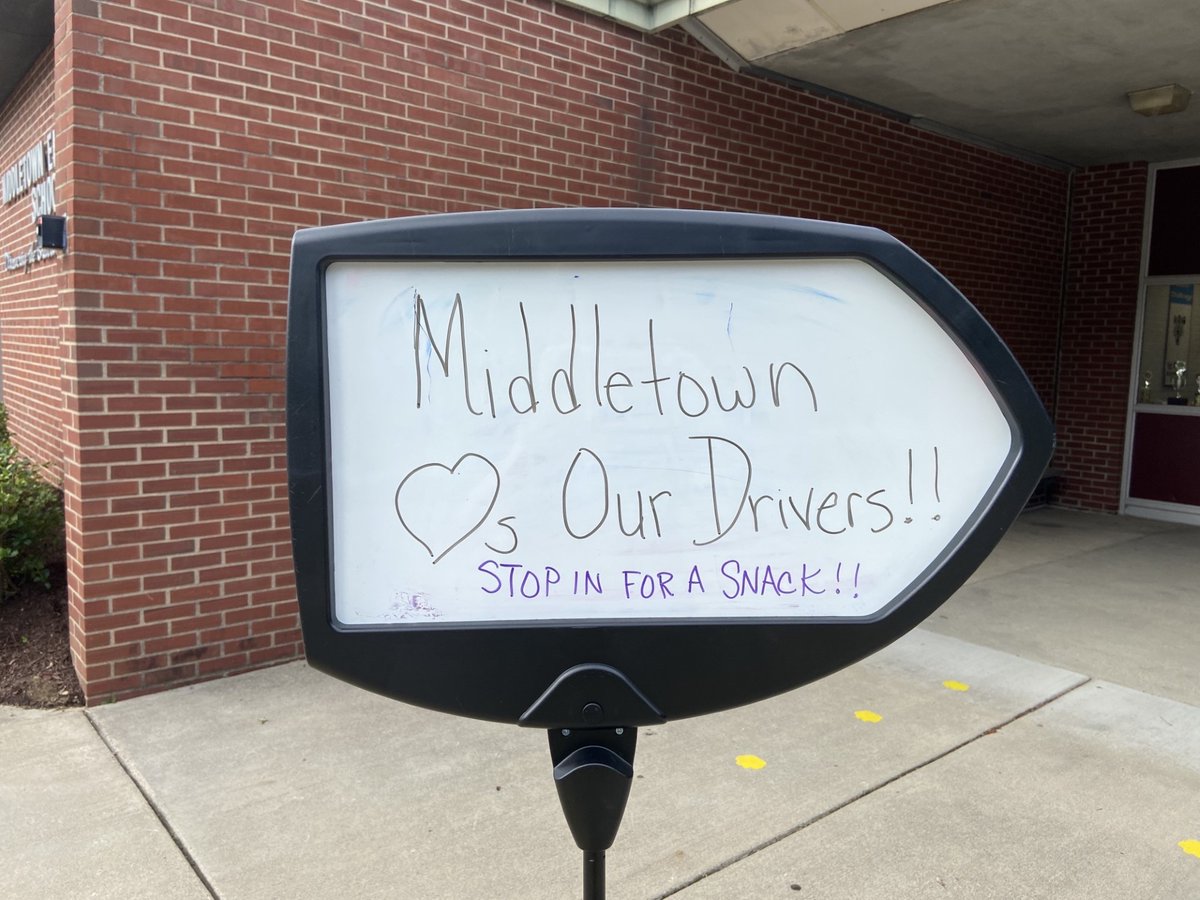 MIDDLETOWN
SCHOOL
Middletown
♡s Our Drivers!!
STOP IN FOR A SNACK!!